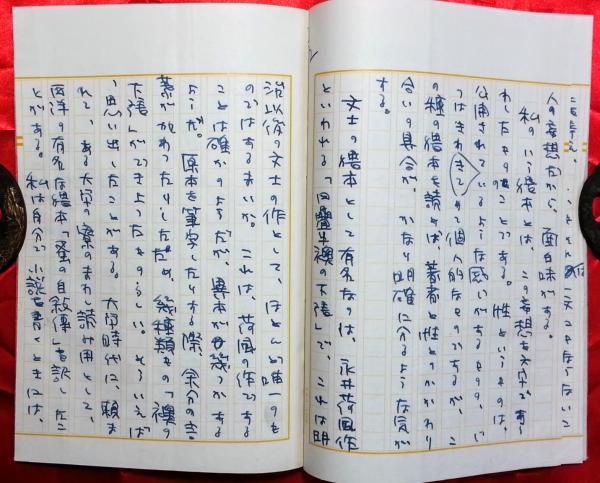 人の妄想だから、面白味がある。
私のいう猥本とは、この妄想を文字であらわしたもののことである。性というものは、
公開されているような感いがあるものの、じつはきわめて個人的なものであるが、こ
の種の猥本を読めば、著者と性とのかかわり
合いの具合が、かなり明確に分るような気が
する。
文士の猥本として有名なのは、永井荷風作
といわれる「四畳半襖の下張」で、これは明
治以後の文士の作として、ほとんど唯一のも
のではあるまいか。これは、荷風の作である
ことは確かのようだが、異本が幾つかある
ようだ。原本を筆写したりする際、余分の言
葉が加わったりしたため、幾種類もの「襖の
下張」ができ上ったものらしい。そういえば
、思い出したことがある。大学時代に、頼ま
れて、ある大学の寮のまわし読み用として、
西洋の有名な猥本「蚤の自叙傳」を訳したこ
とがある。私は自分で小説を書くときには、